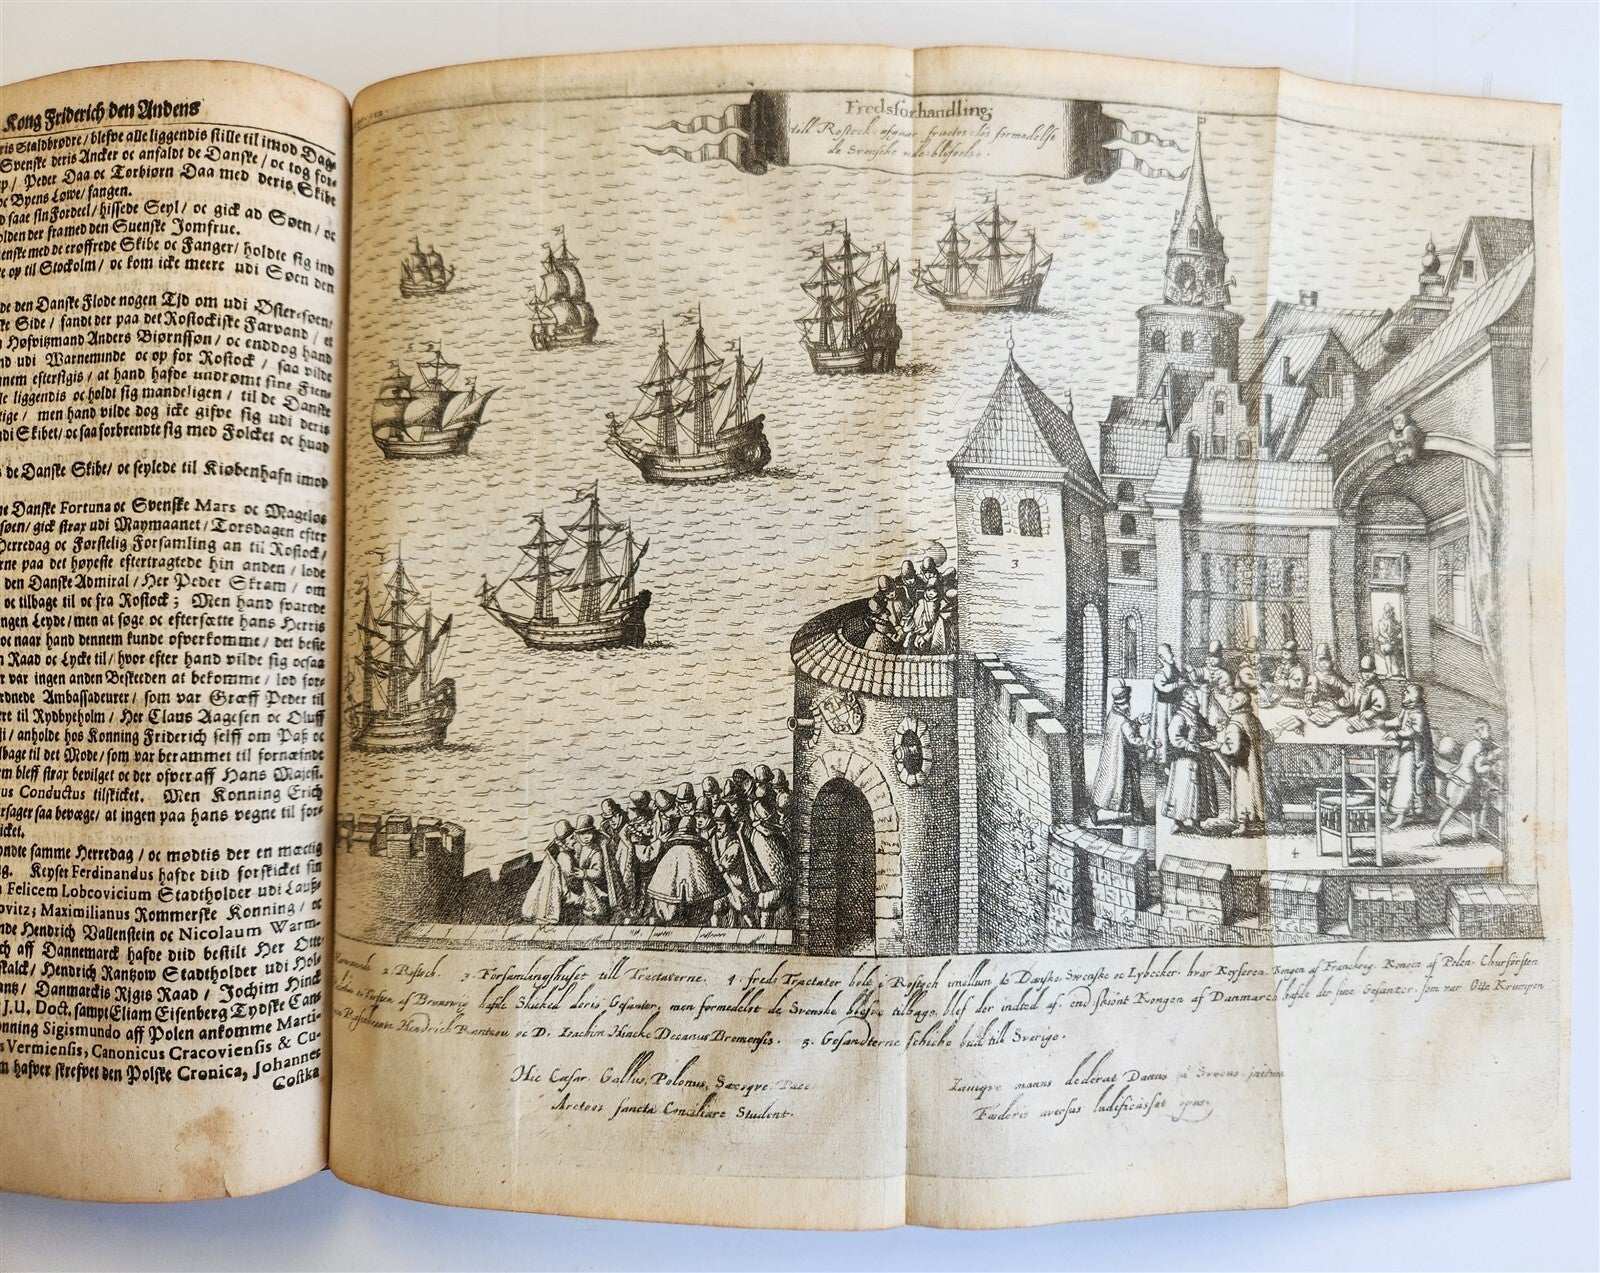 Kong Friderich den Andens
ris Staldbrødre / blefve alle liggendis stille til imod Dag-
Svenske deris Ancker oc anfaldt de Danske / oc tog for-
p / Peder Daa oc Torbiørn Daa med deris Skibe
oc Byens Løwe / fangen.
d saae sin Fordeel / hissede Seyl / oc gick ad Søen / oc
olden der fra med den Svenske Jomfrue.
enske med de eroffrede Skibe oc Fanger / holdte sig ind
e op til Stockolm / oc kom icke meere udi Søen den
de den Danske Flode nogen Tjd om udi Øster-søen /
ke Side / fandt der paa det Rostockiske Farvand / et
Høfvitzmand Anders Biørnssøn / oc enddog hand
nd udi Warneminde oc op for Rostock / saa vilde
nnem eftersigis / at hand hafde undrømt sine Fien-
le liggendis oc holdt sig mandeligen / til de Danske
tige / men hand vilde dog icke gifve sig udi deris
udi Skibet / oc saa forbrendte sig med Folcket oc huad
de Danske Skibe / oc seylede til Kiøbenhafn imod
ne Danske Fortuna oc Svenske Mars oc Mageløs
søen / gick strax udi Maymaanet / Torsdagen efter
Herredag oc Førstelig Forsamling an til Rostock /
rne paa det høyeste eftertragtede hin anden / lode
den Danske Admiral / Her Peder Skram / om
oc tilbage til oc fra Rostock; Men hand svarede
ngen Leyde / men at søge oc eftersætte hans Herris
oc naar hand dennem kunde ofverkomme / det beste
Raad oc Lycke til / hvor efter hand vilde sig ocsaa
r var ingen anden Beskeeden at bekomme / lod for-
rdnede Ambassadeurer / som var Græff Peder til
re til Rydbyeholm / Her Claus Aagesen oc Oluff
/ anholde hos Konning Friderich self om Paß oc
lbage til det Mode / som var berammet til fornæfnde
m bleff strax bevilget oc der ofver aff Hans Majest.
us Conductus tilskicket. Men Konning Erich
rsager saa bevæge / at ingen paa hans vegne til for-
icket.
ndte samme Herredag / oc mødtis der en mæctig
g. Keyser Ferdinandus hafde did forskicket sin
Felicem Lobcovicium Stadtholder udi Lauß-
ovitz; Maximilianus Rommerske Konning / oc
nde Hendrich Vallenstein oc Nicolaum Warm-
ch aff Dannemarck hafde diid bestilt Her Otte
skalck / Hendrich Rantzow Stadtholder udi Hol-
antz / Danmarckis Rigis Raad / Jochim Hinck
J.U. Doct. sampt Eliam Eisenberg Tydske Can-
onning Sigismundo aff Polen ankomme Marti-
s Vermiensis, Canonicus Cracoviensis & Cu-
m hafver skrefvet den Polske Cronica, Johannes
Costka
Fredsforhandling
till Rostock: afgaar fructes-løs formedelst
de Svenske ude-blefvelse.
5
3
4
2. Rostock. 3. Forsamlingshuset till Tractaterne. 4. freds Tractater holt i Rostoch imellum de Danske, Svenske oc Lybecker: hvor Keyseren, Kongen af Franckerig, Kongen af Polen, Churførsten
af Brunswig hafde Skicked deris Gesanter, men formedelst de Svenske blefve tilbage, blef der indted af; end skiönt Kongen af Danmarck hafde der sine Gesanter, som var Otte Krumpen
Hendrich Rantzou oc D. Ioachim Hincke Decanus Bremensis. 5. Gesandterne schicke bud till Sverige.
Hic Cæsar, Gallus, Polonus, Saxoqve, Pace
Arctoos sancta Conciliare Student.
Iamqve manus dederat Danus
Fœderis aversus ludificasset opus